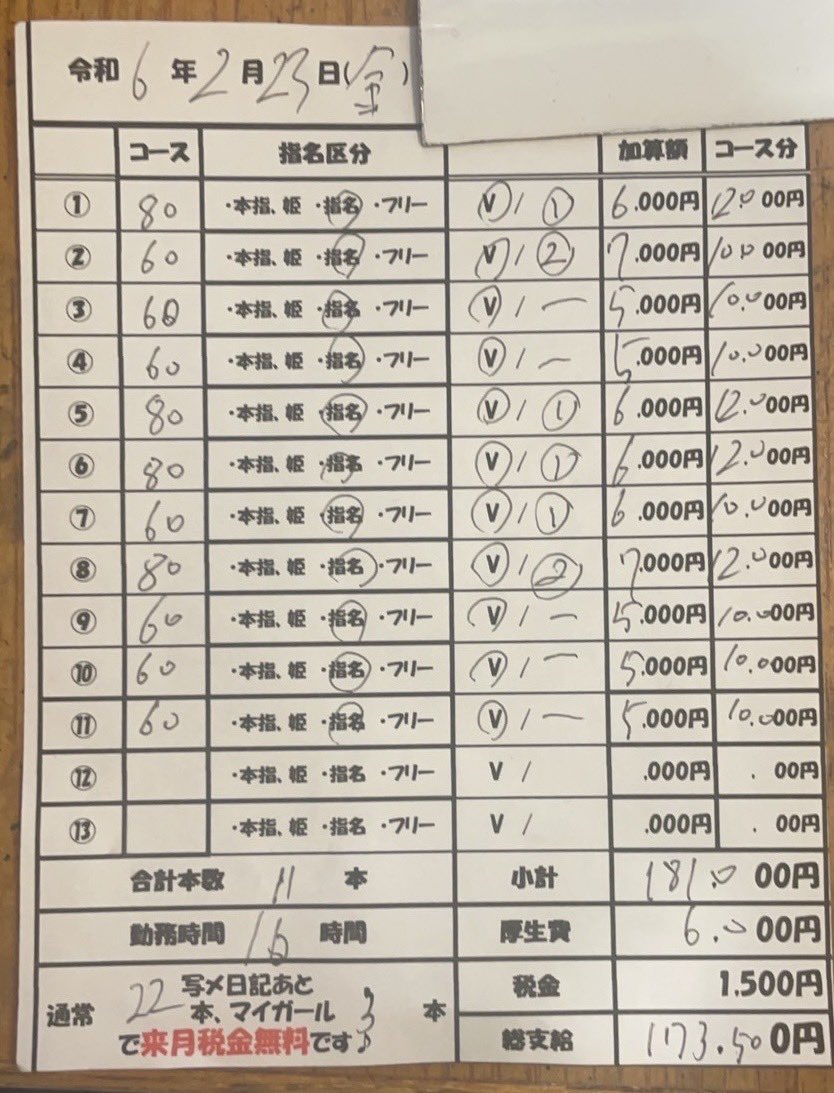 令和 6 年 2 月 23 日(金)
コース 指名区分 加算額 コース分
① 80 ・本指、姫 ・指名 ・フリー V / ① 6.000円 12.000円
② 60 ・本指、姫 ・指名 ・フリー V / ② 7.000円 10.000円
③ 60 ・本指、姫 ・指名 ・フリー V / ー 5.000円 10.000円
④ 60 ・本指、姫 ・指名 ・フリー V / ー 5.000円 10.000円
⑤ 80 ・本指、姫 ・指名 ・フリー V / ① 6.000円 12.000円
⑥ 80 ・本指、姫 ・指名 ・フリー V / ① 6.000円 12.000円
⑦ 60 ・本指、姫 ・指名 ・フリー V / ① 6.000円 10.000円
⑧ 80 ・本指、姫 ・指名 ・フリー V / ② 7.000円 12.000円
⑨ 60 ・本指、姫 ・指名 ・フリー V / ー 5.000円 10.000円
⑩ 60 ・本指、姫 ・指名 ・フリー V / ー 5.000円 10.000円
⑪ 60 ・本指、姫 ・指名 ・フリー V / ー 5.000円 10.000円
⑫ ・本指、姫 ・指名 ・フリー V / .000円 . 00円
⑬ ・本指、姫 ・指名 ・フリー V / .000円 . 00円
合計本数 11 本 小計 181.000円
勤務時間 16 時間 厚生費 6.000円
通常 22 写メ日記あと 税金 1.500円
本、マイガール 3 本
で来月税金無料です 総支給 173.500円